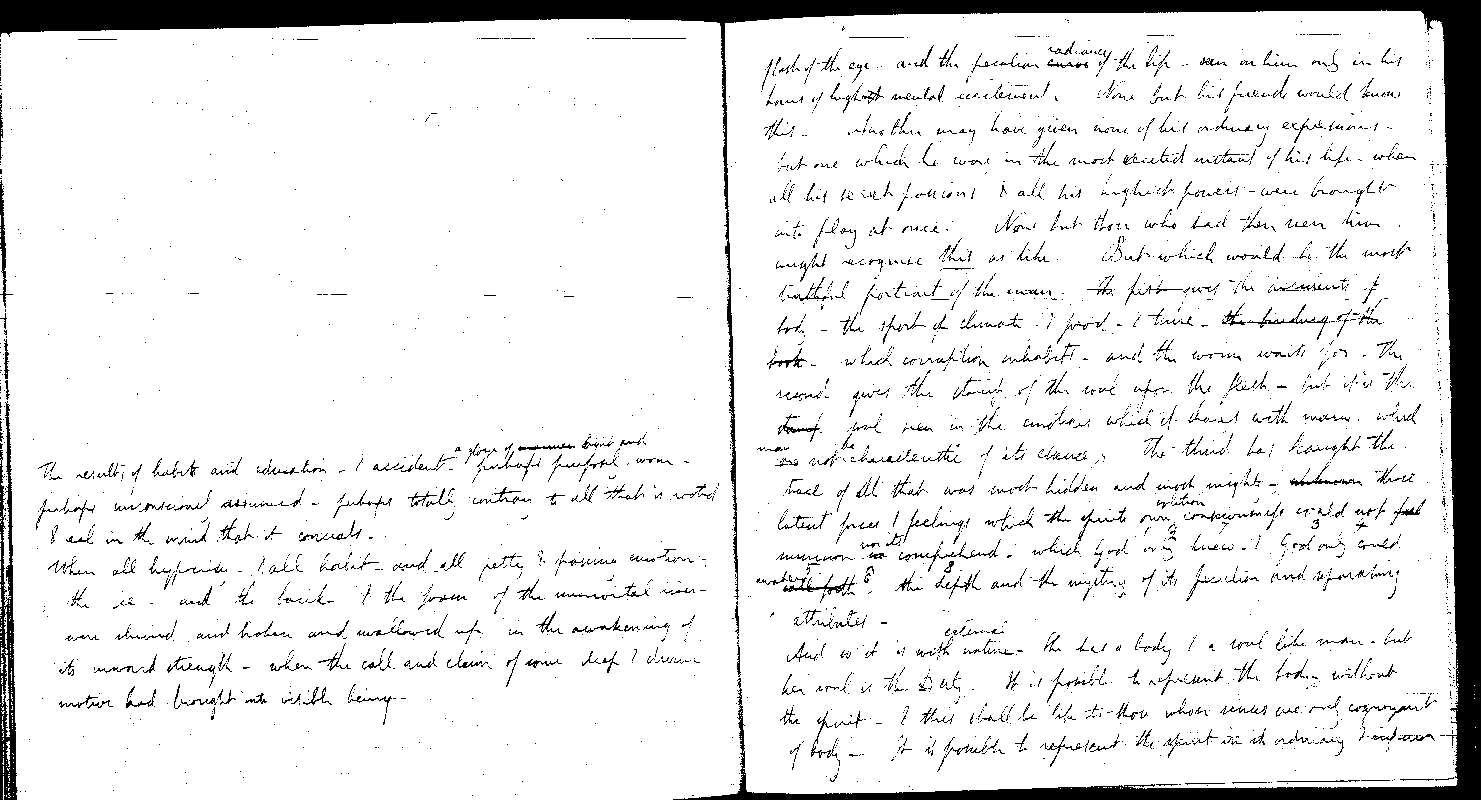 a glare of manner laid and
The results of habits and education - & accident - perhaps purposely worn -
perhaps unconscious assumed - perhaps totally contrary to all that is rooted
& real in the mind that it conceals -
When all hypocrisy - & all habit - and all petty & passing emotion -
the ice - and the bank & the foam of the immortal river -
were shivered and broken and swallowed up in the awakening of
its inward strength - when the call and claim of some deep & divine
motive had brought into visible being -
flash of the eye - and the peculiar curve radiancy of the lip - seen on him only in his
hours of highest mental excitement. None but his friends would know
this - Another may have given none of his ordinary expressions -
but one which he wore in the most excited instant of his life - when
all his secret passions & all his highest powers - were brought
into play at once. None but those who had then seen him
might recognise this as like. But which would be the most
truthful portrait of the man. The first gives the accidents of
body - the sport of climate & food - & time - the binding of the
book - which corruption inhabits - and the worm waits for - The
second gives the stamp of the soul upon the flesh - but it is the
stamp soul seen in the emotions which it shares with many - which
may
are not be characteristic of its essence. The third has caught the
trace of all that was most hidden and most mighty - unknown those
latent forces & feelings which the spirits own volition consciousness could not feel
comprehend - which God only knew - & God only could
awaken the depth and the mystery of its peculiar and separating
attributes -
And so it is with external nature - she has a body & a soul like man - but
her soul is the Deity. It is possible to represent the body without
the spirit - & this shall be like to those whose senses are only cognizant
of body - It is possible to represent the spirit in its ordinary &